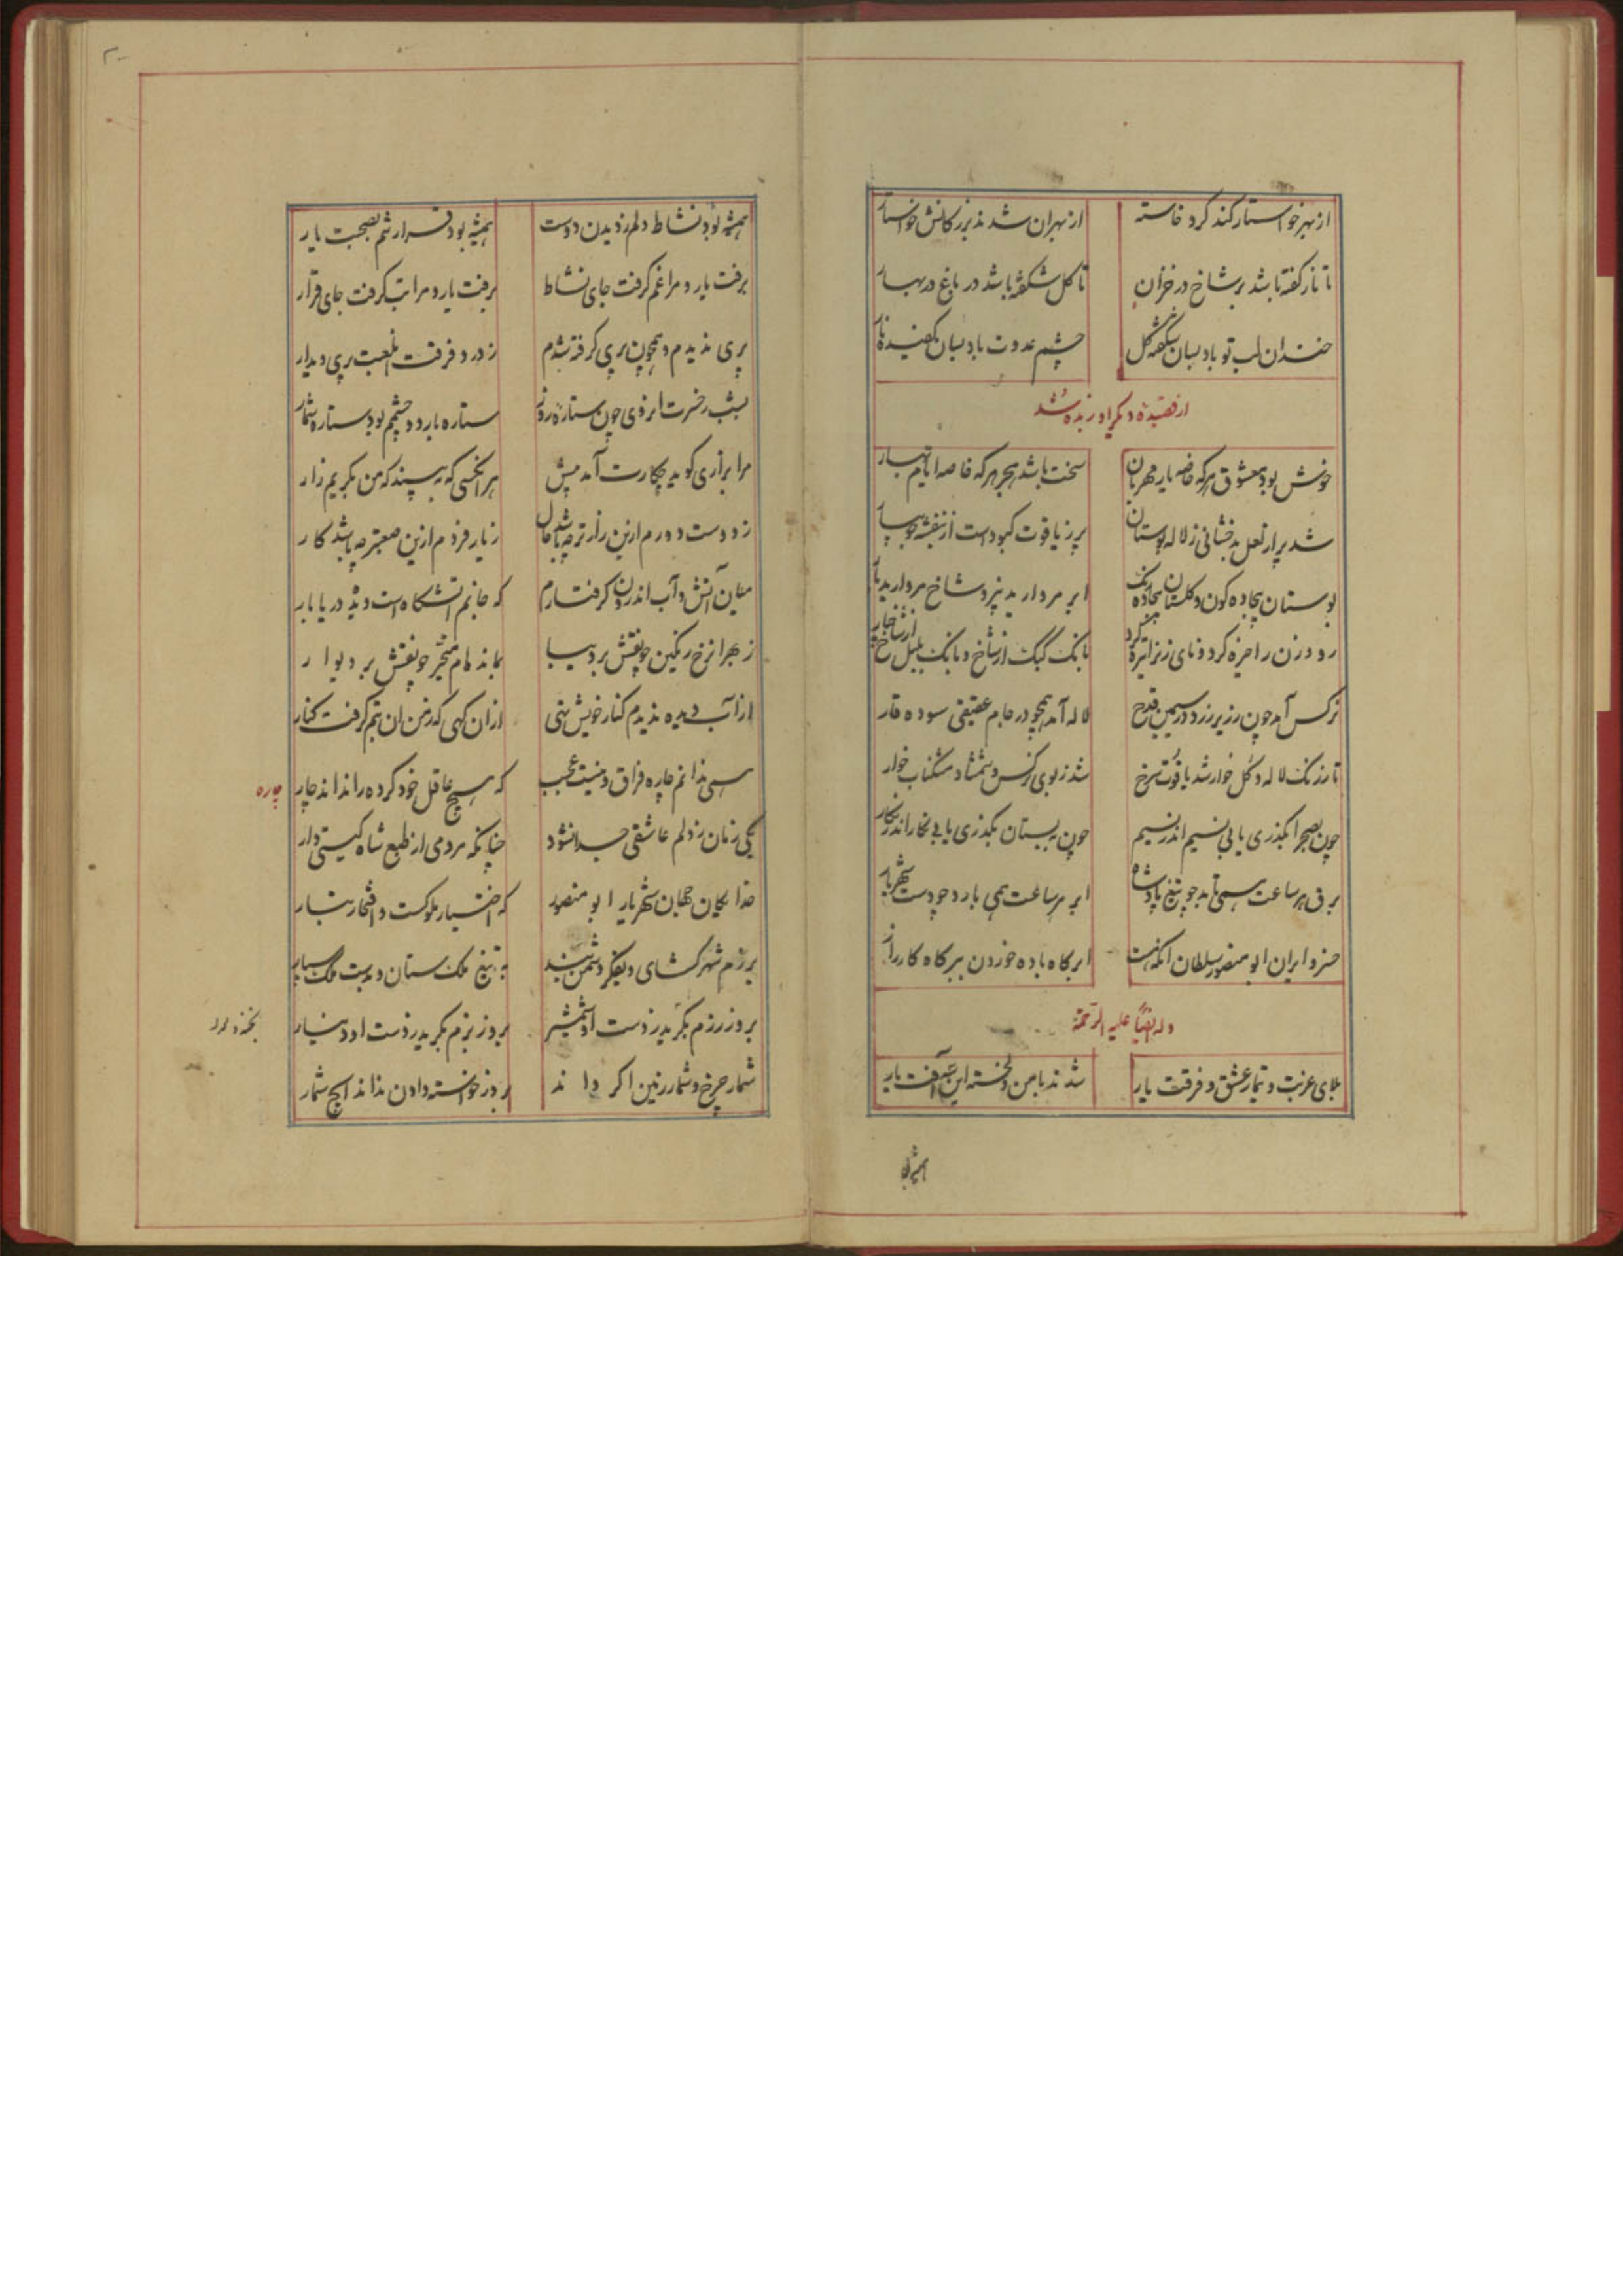 از بهر خواستار کند کرد خاسته
از بهر ان شد ند بزرکانش خواستار
تا نار کفته باشد بر شاخ در خزان
تا کل شکفته باشد در باغ در بهار
خندان لب تو باد بسان شکفته کل
چشم عدوت باد بسان کفیده نار
از قصیده دیکر او زبده شد
خوش بود معشوق هر که خاصه یار مهربان
سخت باشد هجر هر که خاصه ایام بهار
شد پر از لعل بدخشانی ز لاله بوستان
پر ز یاقوت کبود است از بنفشه جویبار
بوستان بیجاده کون و کلستان بیجاده رنک
ابر مروارید ریز و شاخ مروارید بار
رود زن را خیره کرد و نای زن را تیره کرد
بانک کبک از شاخ و بانک بلبل از شاخسار
نرکس آمد چون زریر زرد در سیمین قدح
لاله آمد همچو در جام عقیقی سوده قار
تا ز رنک لاله و کل خوار شد یاقوت سرخ
شد ز بوی نرکس و شمشاد مشکناب خوار
چون بصحرا بکذری یابی نسیم اندر نسیم
چون ببستان بکذری یابی نکار اندر نکار
برق هر ساعت همی تابد چو تیغ پادشاه
ابر هر ساعت همی بارد چو دست شهریار
خسرو ایران ابو منصور سلطان آنکه هست
ابر کاه باده خوردن ببر کاه کارزار
وله ایضا علیه الرحمة
بلای غربت و تیمار عشق و فرقت یار
شدند با من دلخسته این سه آفت یار
همیشه بود
همیشه بود نشاط دلم ز دیدن دوست
همیشه بود قرار تنم بصحبت یار
برفت یار و مرا غم کرفت جای نشاط
برفت یار و مرا تب کرفت جای قرار
پری ندیدم و همچون پری کرفته شدم
ز درد فرقت آن لعبت پری دیدار
بشب ز حسرت ان روی چون ستاره روز
ستاره بارد و چشمم بود ستاره شمار
مرا بزاری کوید چکارت آمد پیش
هر آنکسی که ببیند که من بکریم زار
ز دوست دورم ازین زارتر چه باشد حال
ز یار فردم ازین صعبتر چه باشد کار
میان آتش و آب اندرون کرفتارم
که جانم آتشکاه است و دیده دریا بار
ز هجر انرخ رنکین چو نقش بر دیبا
بمانده ام متحیر چو نقش بر دیوار
از آب دیده ندیدم کنار خویش تهی
از ان کهی که ز من ان بتم کرفت کنار
همی ندانم چاره فراق و نیست عجب
که هیچ عاقل خود کرده را نداند چار
چاره
یکی زمان ز دلم عاشقی جدا نشود
چنانکه مردمی از طبع شاه کیتی دار
خدایکان جهان شهریار ابو منصور
که اختیار ملوکست و افتخار تبار
برزم شهر کشای و بفکر دشمن بند
به تیغ ملک ستان و بدست ملک سپار
بروز رزم بکرید ز دست او شمشیر
بروز بزم بکرید ز دست او دینار
شمار چرخ و شمار زمین اکر داند
بروز خواسته دادن نداند ایچ شمار